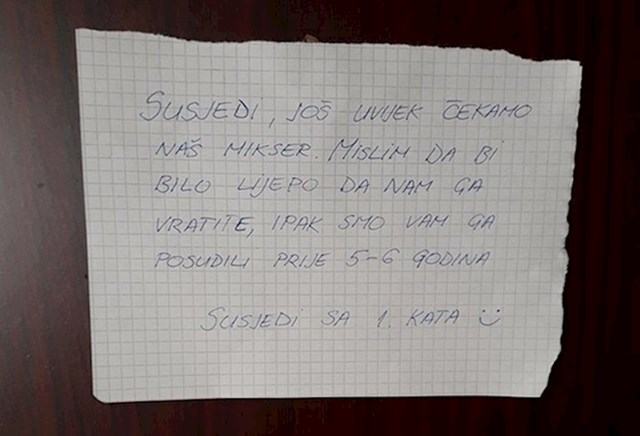 SUSJEDI, JOŠ UVIJEK ČEKAMO
NAŠ MIKSER. MISLIM DA BI
BILO LIJEPO DA NAM GA
VRATITE, IPAK SMO VAM GA
POSUDILI PRIJE 5-6 GODINA
SUSJEDI SA 1. KATA :)